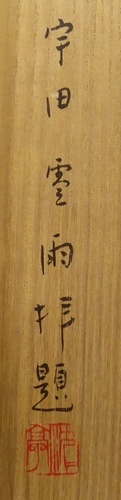 宇田雲雨拝題